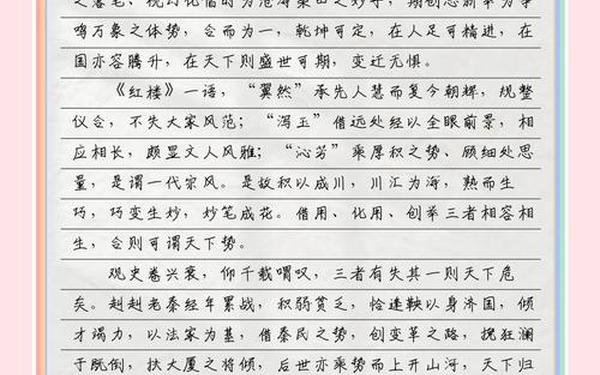 鸣万象之体势，会而为一，乾坤可定，在人足可精进，在
国亦容腾升，在天下则盛世可期，变迁无惧。
《红楼》一语，“翼然”承先人慧而复今朝辉，规整
仪合，不失大家风范；“泻玉”借远处经以全眼前景，相
应相长，颇显文人风雅；“沁芳”乘厚积之势、顾细处思
量，是谓一代宗风。是故积以成川，川汇为海，熟而生
巧，巧变生妙，妙笔成花。借用、化用、创举三者相容相
生，会则可谓天下势。
观史卷兴衰，仰千载喟叹，三者有失其一则天下危
矣。赳赳老秦经年累战，积弱贫乏，恰逢鞅以身济国，倾
才竭力，以法家为基，借秦民之势，创变革之路，挽狂澜
于既倒，扶大厦之将倾，后世亦乘势而上开山河，天下归